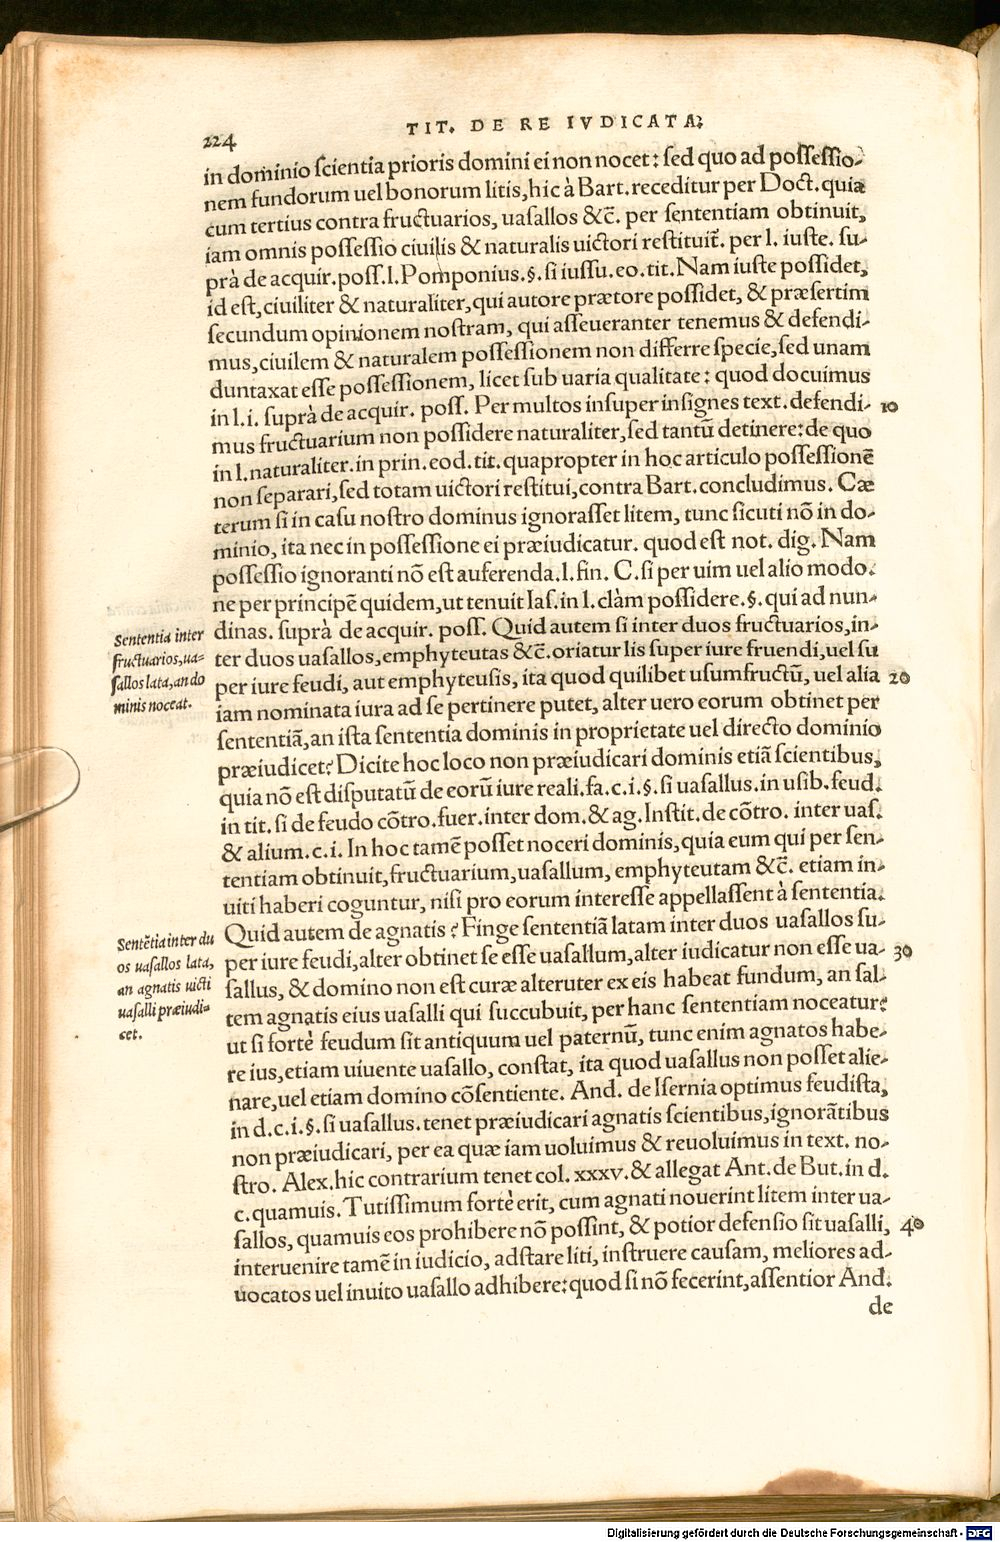 224
TIT. DE RE IVDICATA,
in dominio ſcientia prioris domini ei non nocet: ſed quo ad poſſeſſio-
nem fundorum uel bonorum litis, hic à Bart. receditur per Doct. quia
cum tertius contra fructuarios, uaſallos &c̄. per ſententiam obtinuit,
iam omnis poſſeſſio ciuilis & naturalis uictori reſtituit̃. per l. iuſte. ſu-
prà de acquir. poſſ. l. Pomponius. §. ſi iuſſu. eo. tit. Nam iuſte poſſidet,
id eſt, ciuiliter & naturaliter, qui autore prætore poſſidet, & præſertim
ſecundum opinionem noſtram, qui aſſeueranter tenemus & defendi-
mus, ciuilem & naturalem poſſeſſionem non differre ſpecie, ſed unam
duntaxat eſſe poſſeſſionem, licet ſub uaria qualitate: quod docuimus
in l. i. ſuprà de acquir. poſſ. Per multos inſuper inſignes text. defendi- 10
mus fructuarium non poſſidere naturaliter, ſed tantũ detinere: de quo
in l. naturaliter. in prin. eod. tit. quapropter in hoc articulo poſſeſſionẽ
non ſeparari, ſed totam uictori reſtitui, contra Bart. concludimus. Cæ
terum ſi in caſu noſtro dominus ignoraſſet litem, tunc ſicuti nõ in do-
minio, ita nec in poſſeſſione ei præiudicatur. quod eſt not. dig. Nam
poſſeſſio ignoranti nõ eſt auferenda. l. fin. C. ſi per uim uel alio modo.
ne per principẽ quidem, ut tenuit Iaſ. in l. clàm poſſidere. §. qui ad nun-
dinas. ſuprà de acquir. poſſ. Quid autem ſi inter duos fructuarios, in-
ter duos uaſallos, emphyteutas &c̄. oriatur lis ſuper iure fruendi, uel ſu
per iure feudi, aut emphyteuſis, ita quod quilibet uſumfructũ, uel alia 20
iam nominata iura ad ſe pertinere putet, alter uero eorum obtinet per
ſententiã, an iſta ſententia dominis in proprietate uel directo dominio
præiudicet? Dicite hoc loco non præiudicari dominis etiã ſcientibus,
quia nõ eſt diſputatũ de eorũ iure reali. fa. c. i. §. ſi uaſallus. in uſib. feud.
in tit. ſi de feudo cõtro. fuer. inter dom. & ag. Inſtit. de cõtro. inter uaſ.
& alium. c. i. In hoc tamẽ poſſet noceri dominis, quia eum qui per ſen-
tentiam obtinuit, fructuarium, uaſallum, emphyteutam &c̄. etiam in-
uiti haberi coguntur, niſi pro eorum intereſſe appellaſſent à ſententia.
Quid autem de agnatis? Finge ſententiã latam inter duos uaſallos ſu-
per iure feudi, alter obtinet ſe eſſe uaſallum, alter iudicatur non eſſe ua- 30
ſallus, & domino non eſt curæ alteruter ex eis habeat fundum, an ſal-
tem agnatis eius uaſalli qui ſuccubuit, per hanc ſententiam noceatur?
ut ſi fortè feudum ſit antiquum uel paternũ, tunc enim agnatos habe-
re ius, etiam uiuente uaſallo, conſtat, ita quod uaſallus non poſſet alie-
nare, uel etiam domino cõſentiente. And. de Iſernia optimus feudiſta,
in d. c. i. §. ſi uaſallus. tenet præiudicari agnatis ſcientibus, ignorãtibus
non præiudicari, per ea quæ iam uoluimus & reuoluimus in text. no-
ſtro. Alex. hic contrarium tenet col. xxxv. & allegat Ant. de But. in d.
c. quamuis. Tutiſſimum fortè erit, cum agnati nouerint litem inter ua-
ſallos, quamuis eos prohibere nõ poſſint, & potior defenſio ſit uaſalli, 40
interuenire tamẽ in iudicio, adſtare liti, inſtruere cauſam, meliores ad-
uocatos uel inuito uaſallo adhibere: quod ſi nõ fecerint, aſſentior And.
de
Sententia inter
fructuarios, ua-
ſallos lata, an do
minis noceat.
Sentẽtia inter du
os uaſallos lata,
an agnatis uicti
uaſalli præiudi-
cet.
Digitalisierung gefördert durch die Deutsche Forschungsgemeinschaft - DFG